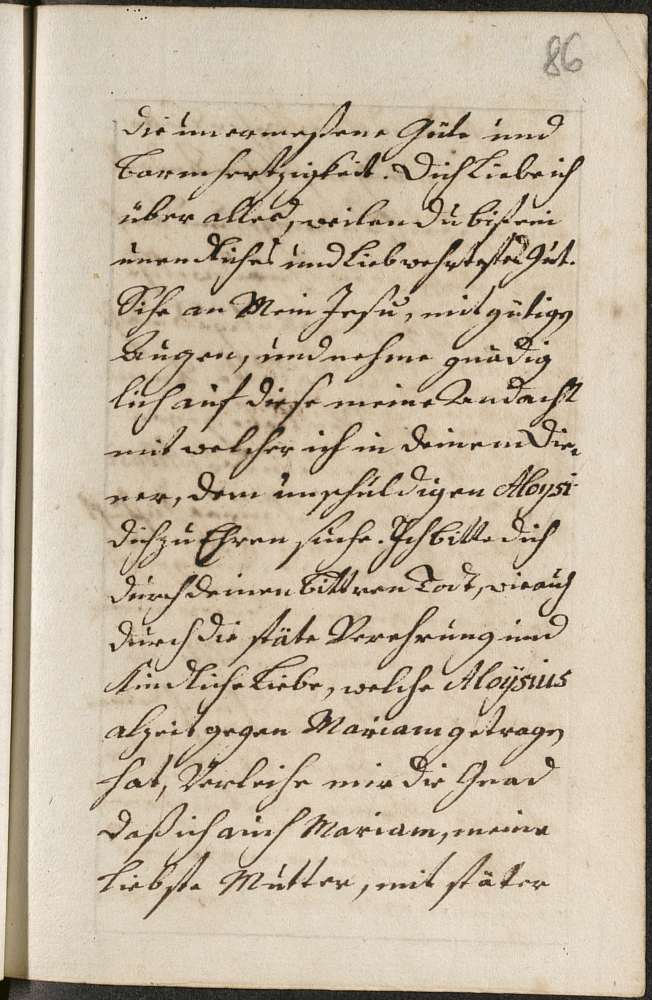 86
die unermeßene Güte und
barmhertzigkeit. Dich Liebe ich
über alles, weilen du bist ein
unendliches und Liebwehrtestes Gut.
Sihe an Mein Jesu, mit gütigen
Augen, und nehme gnädig
lich auf diese meine Andacht
mit welcher ich in deinem Die-
ner, dem unschuldigen Aloysi
dich zu Ehren suche. Ich bitte dich
durch deinen bittren Todt, wie auch
durch die stäte Verehrung und
kindliche Liebe, welche Aloÿsius
alzeit gegen Mariam getragen
hat, Verleihe mir die Gnad
daß ich auch Mariam, meine
Liebste Mutter, mit stäter